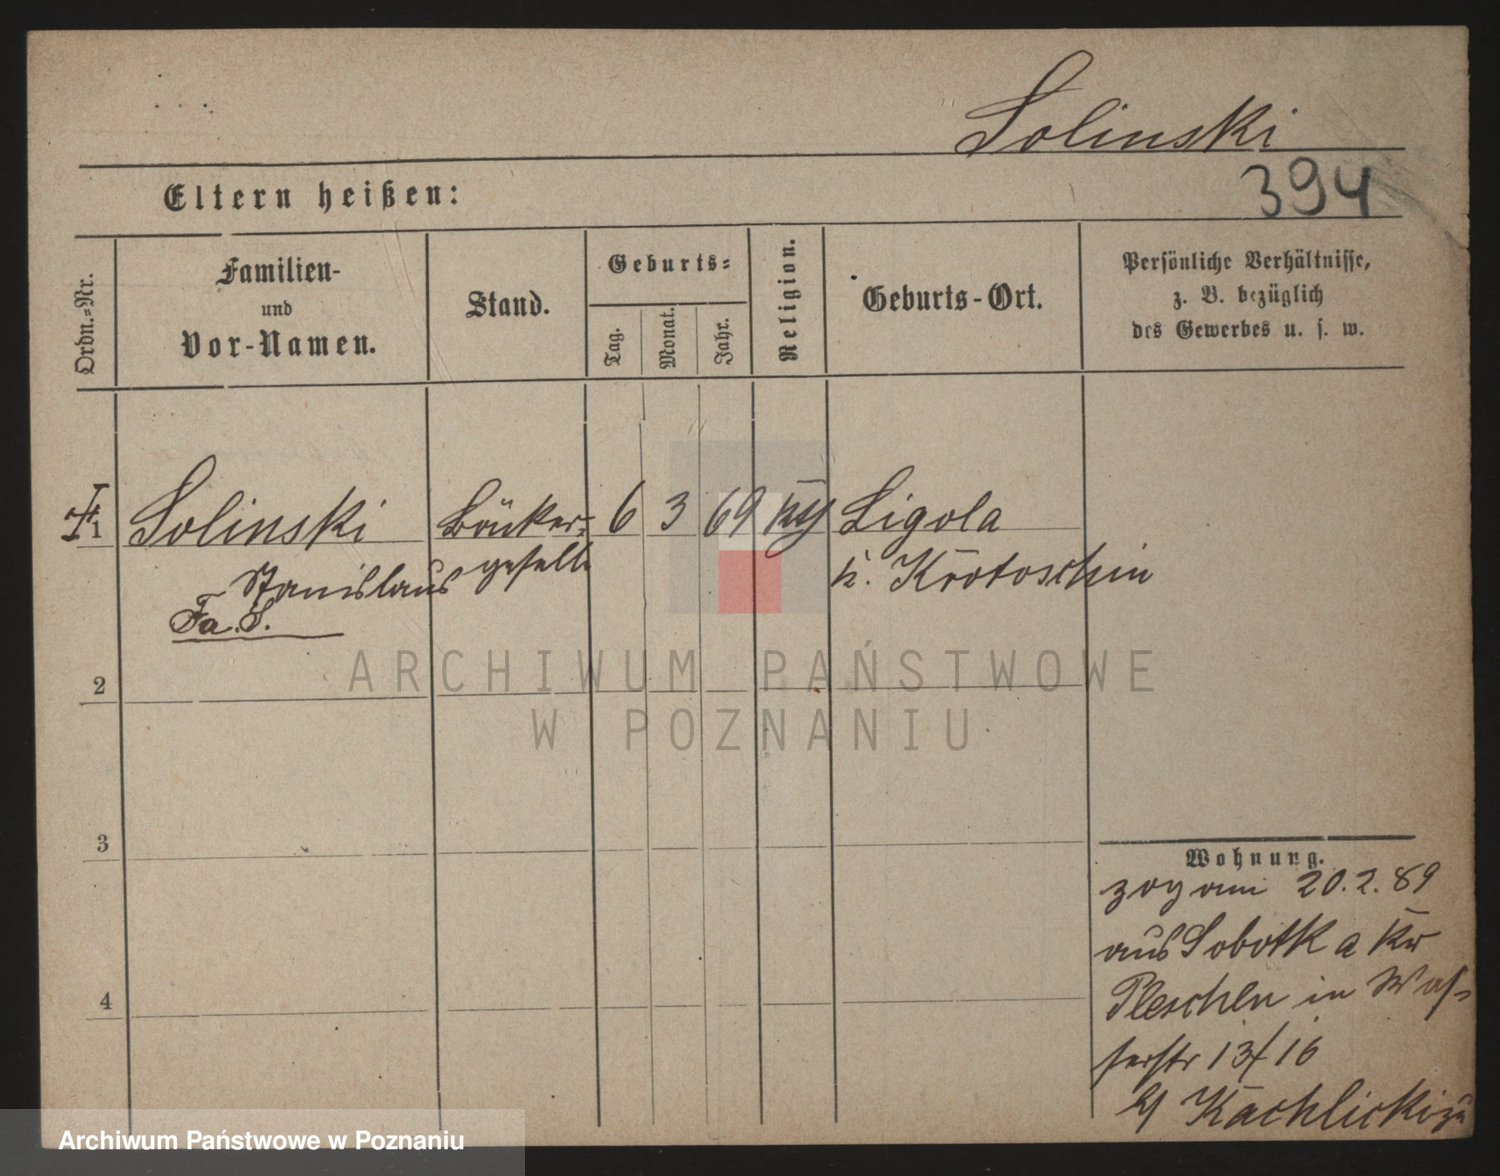 Solinski
394
Eltern heißen:
Ordn.-Nr.
Familien-
und
Vor-Namen.
Stand.
Geburts-
Tag.
Monat.
Jahr.
Religion.
Geburts-Ort.
Persönliche Verhältnisse,
z. B. bezüglich
des Gewerbes u. s. w.
1 Solinski 6 3 69 Ligola
Stanislaus geselle Krotoschin
Fa. S.
ARCHIWUM PAŃSTWOWE
W POZNANIU
2
3
4
Wohnung.
zog am 20.2.89
aus Sobotka Kr
Pleschen in Was-
serstr 13/16
Archiwum Państwowe w Poznaniu